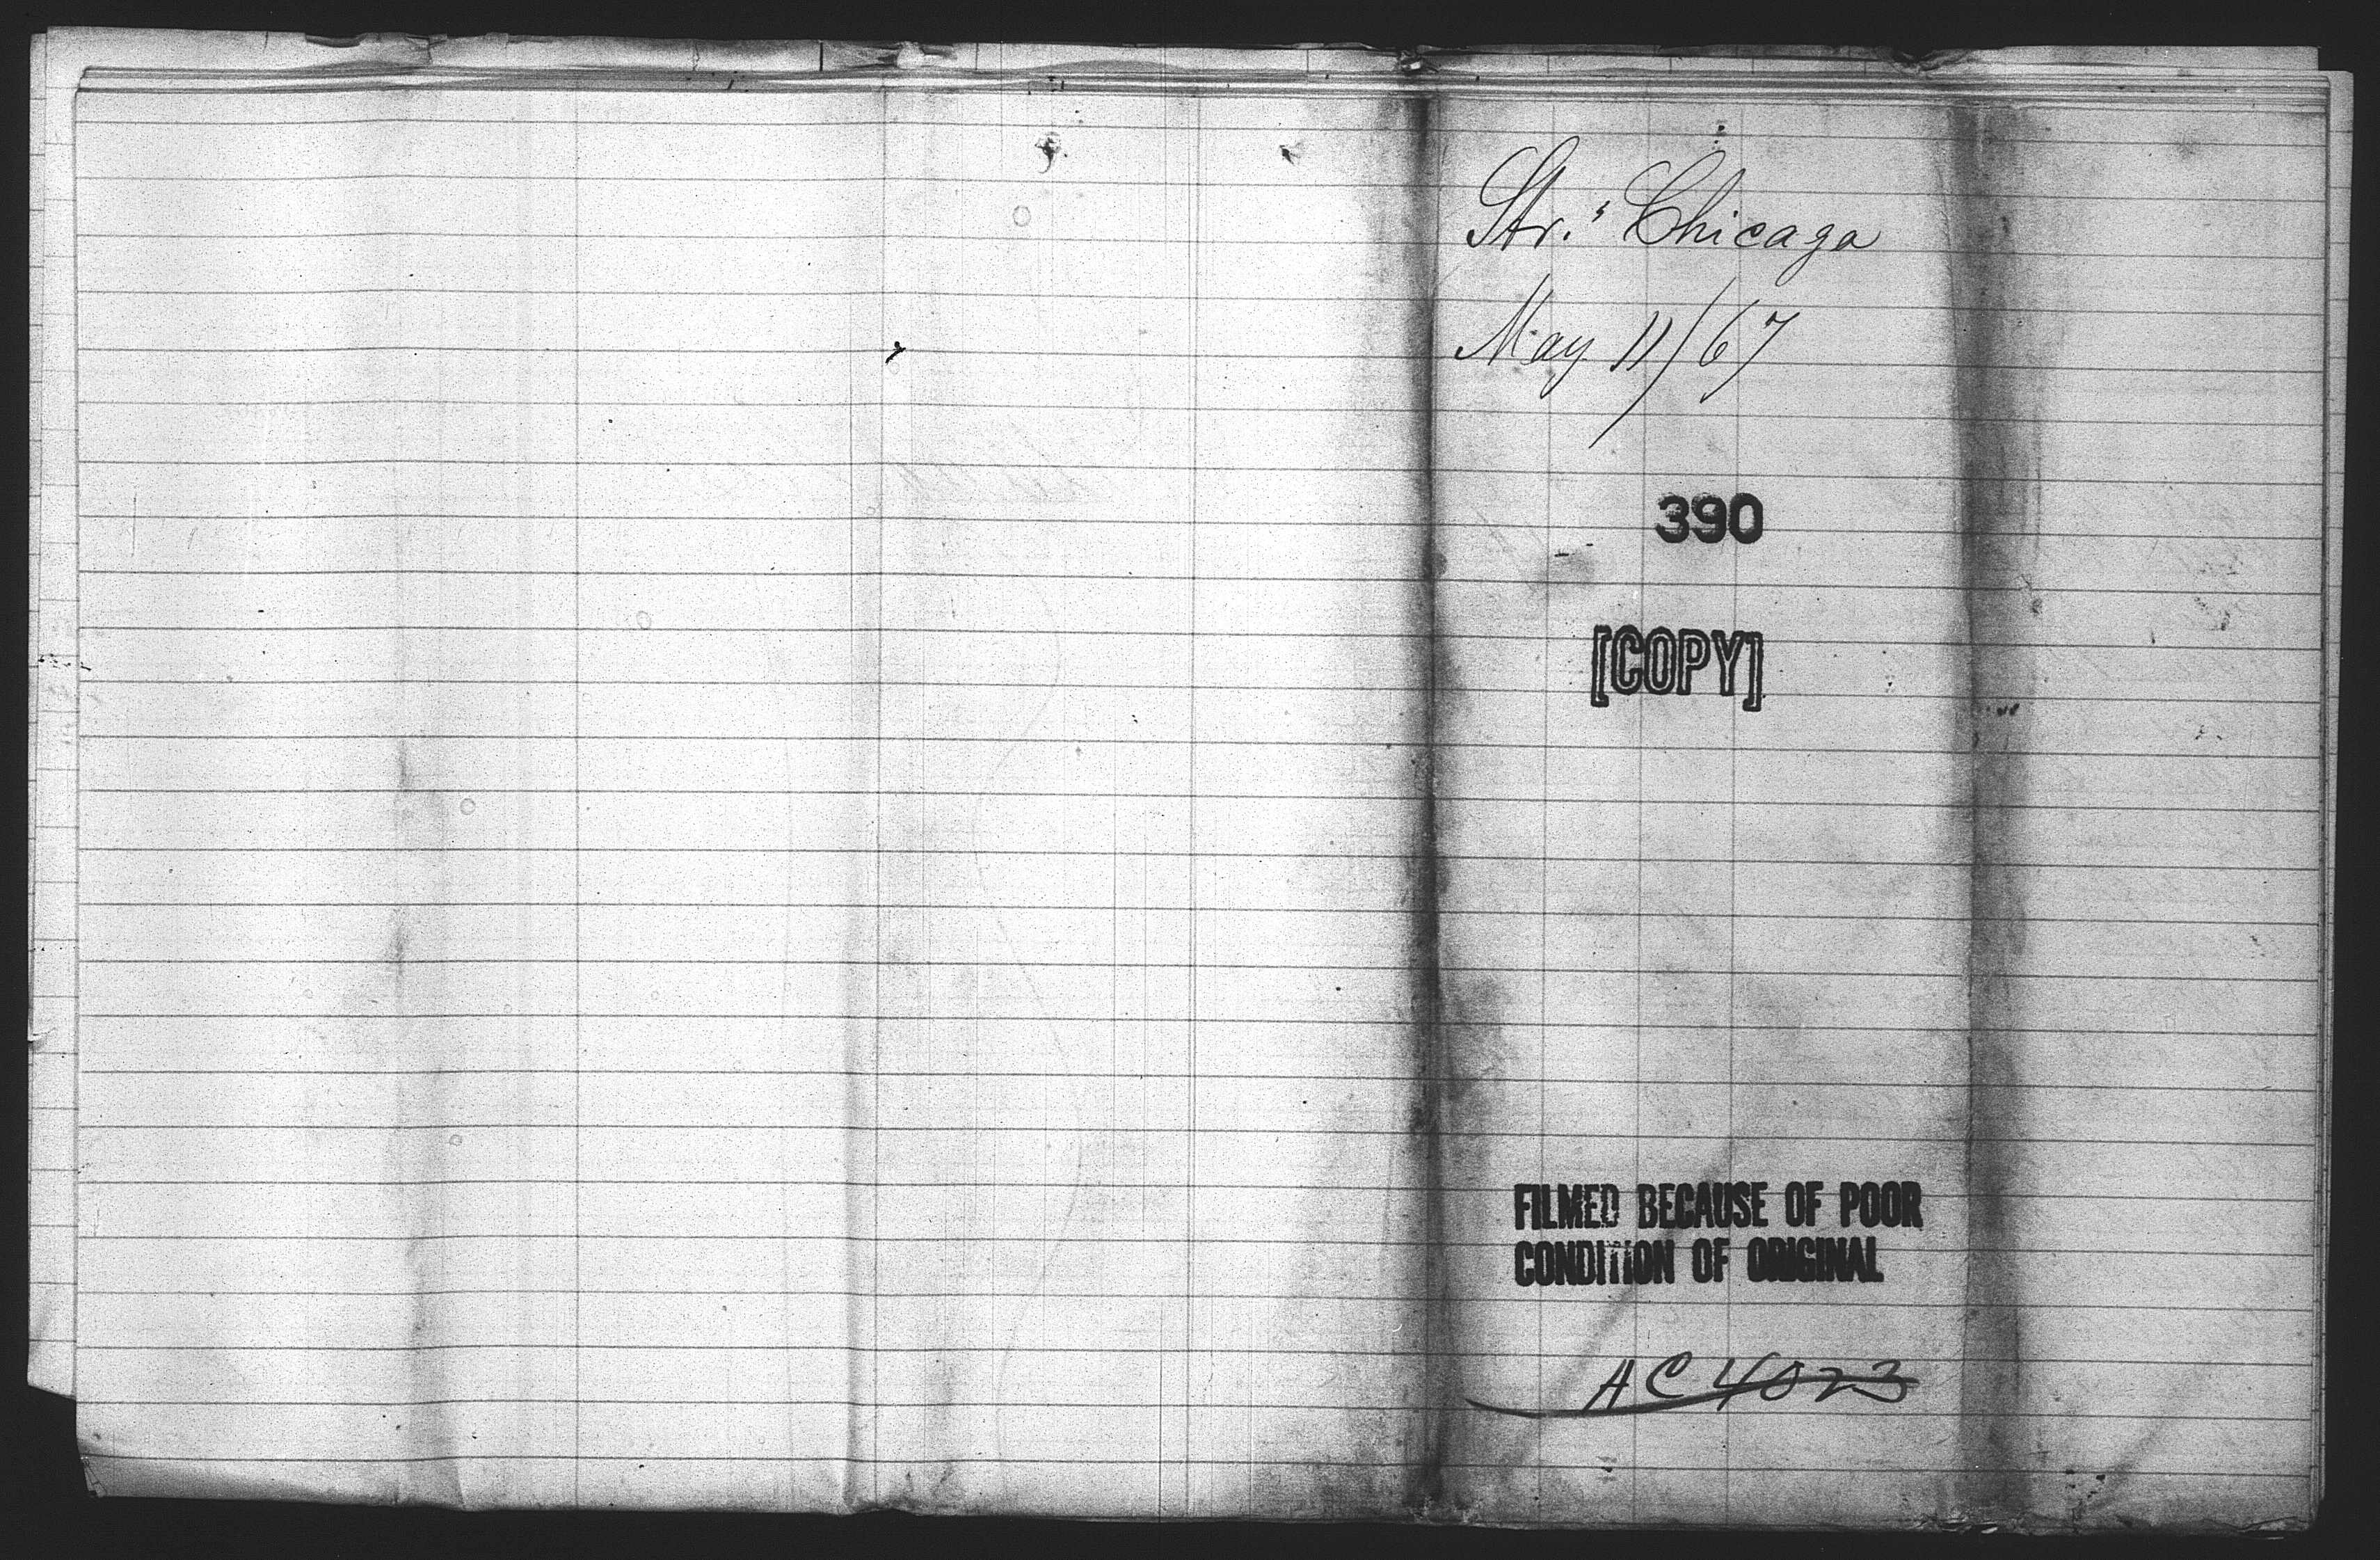 Str. "Chicago
May 11/67
390
[COPY]
FILMED BECAUSE OF POOR
CONDITION OF ORIGINAL
AC 4023